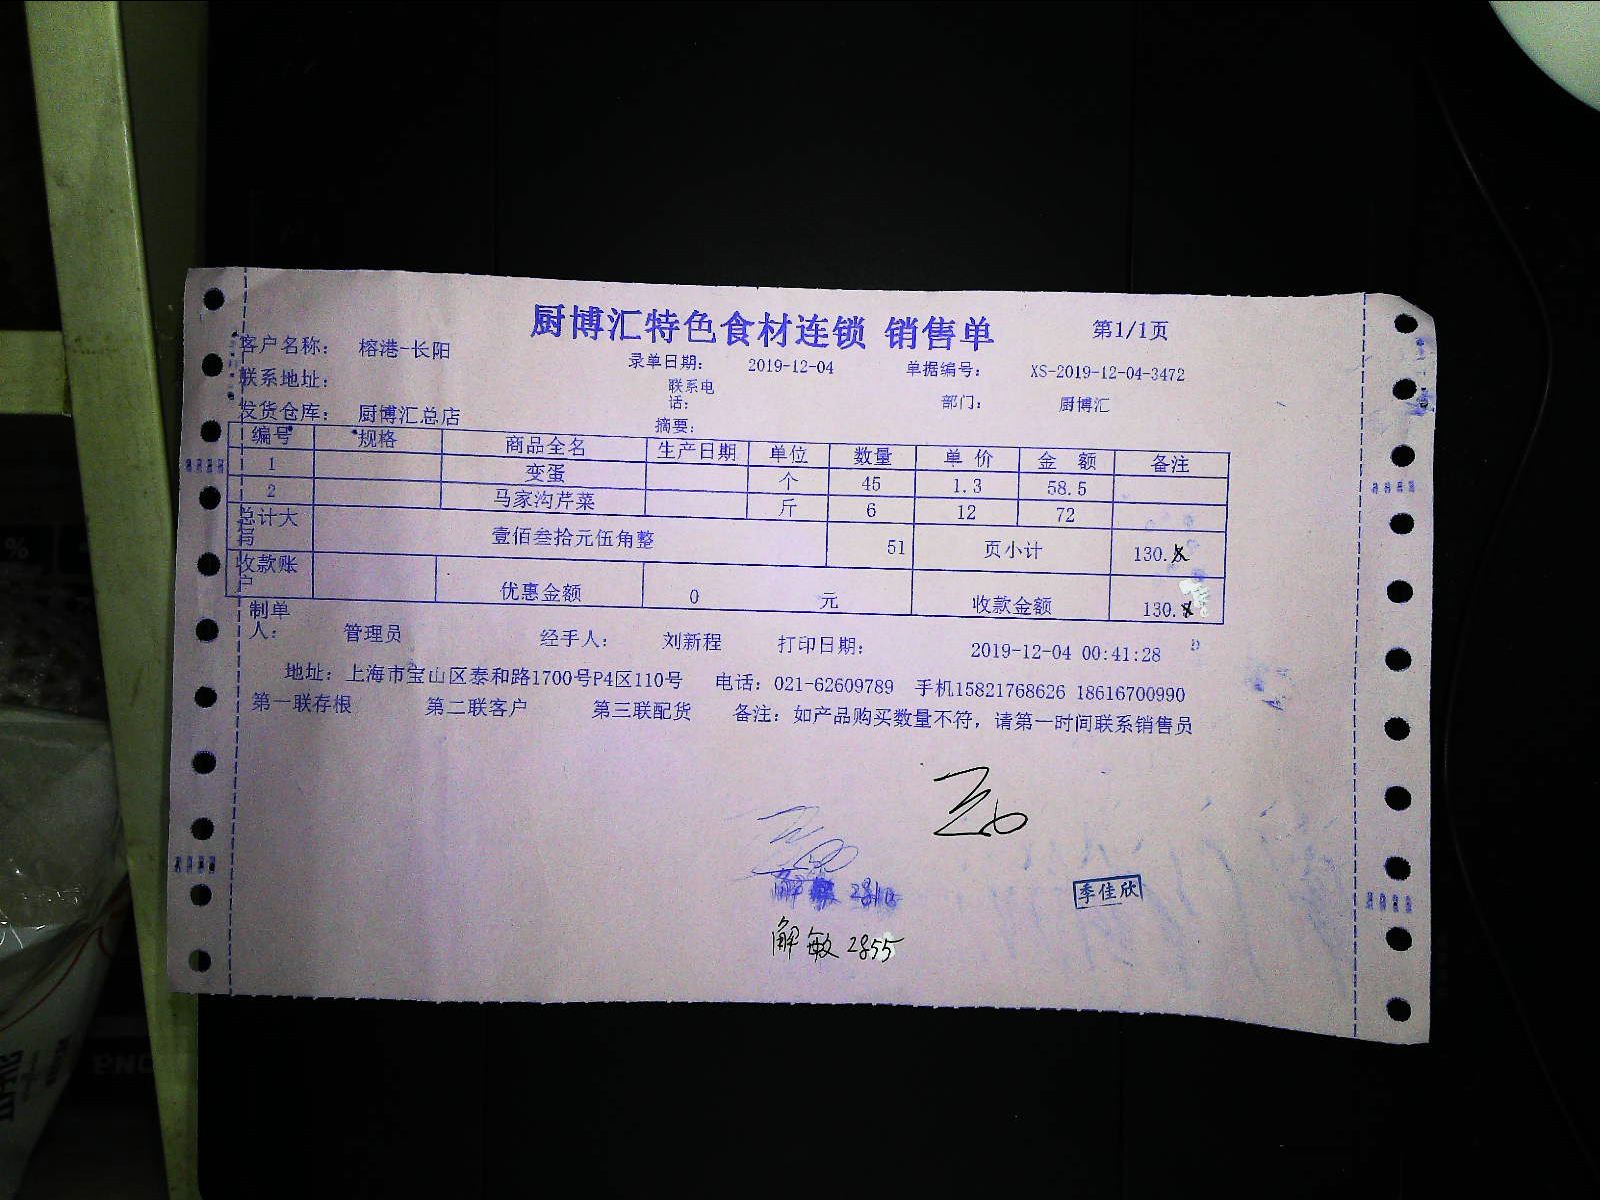 厨博汇特色食材连锁 销售单 第1/1页
客户名称： 榕港-长阳 录单日期： 2019-12-04 单据编号： XS-2019-12-04-3472
联系地址： 联系电话： 部门： 厨博汇
发货仓库： 厨博汇总店 摘要：
编号 规格 商品全名 生产日期 单位 数量 单 价 金 额 备注
1 变蛋 个 45 1.3 58.5
2 马家沟芹菜 斤 6 12 72
总计大写 壹佰叁拾元伍角整 51 页小计 130.
收款账户 优惠金额 0 元 收款金额 130.
制单人： 管理员 经手人： 刘新程 打印日期： 2019-12-04 00:41:28
地址：上海市宝山区泰和路1700号P4区110号 电话：021-62609789 手机15821768626 18616700990
第一联存根 第二联客户 第三联配货 备注：如产品购买数量不符，请第一时间联系销售员
季佳欣
解敏 2855